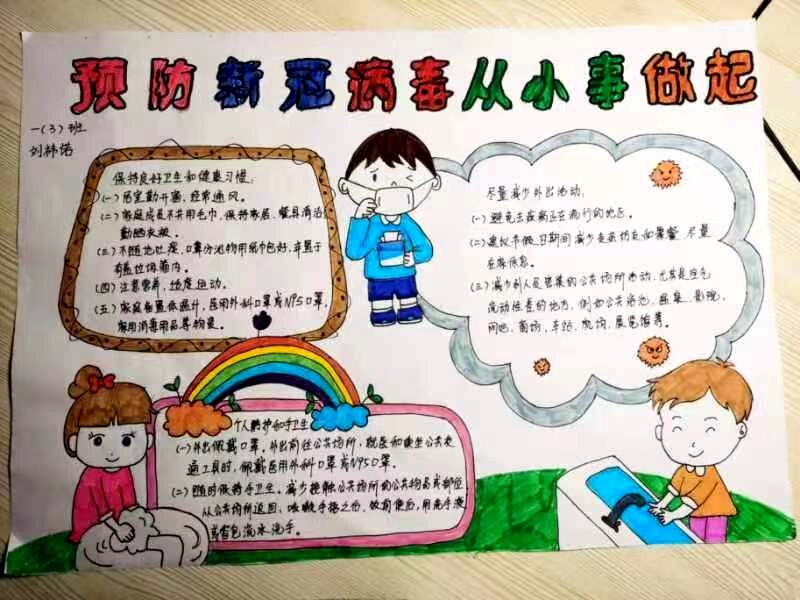 预防新冠病毒从小事做起
一(3)班
刘祎诺
保持良好卫生和健康习惯:
(一)居室勤开窗,经常通风。
(二)家庭成员不共用毛巾,保持家居、餐具清洁
勤晒衣被。
(三)不随地吐痰,口鼻分泌物用纸巾包好,弃置于
有盖垃圾箱内。
(四)注意营养,适度运动。
(五)家庭备置体温计,医用外科口罩或N95口罩,
家用消毒用品等物资。
尽量减少外出活动,
(一)避免去疾病正在流行的地区。
(二)建议节假日期间减少走亲访友和聚餐,尽量
在家休息。
(三)减少到人员密集的公共场所活动,尤其是空气
流动性差的地方,例如公共浴池、温泉、影院、
网吧、商场、车站、机场、展览馆等。
个人防护和手卫生
(一)外出佩戴口罩。外出前往公共场所,就医和乘坐公共交
通工具时,佩戴医用外科口罩或N95口罩。
(二)随时保持手卫生。减少接触公共场所的公共物品或部位
从公共场所返回、咳嗽手捂之后、饭前便后,用洗手液
或香皂流水洗手。